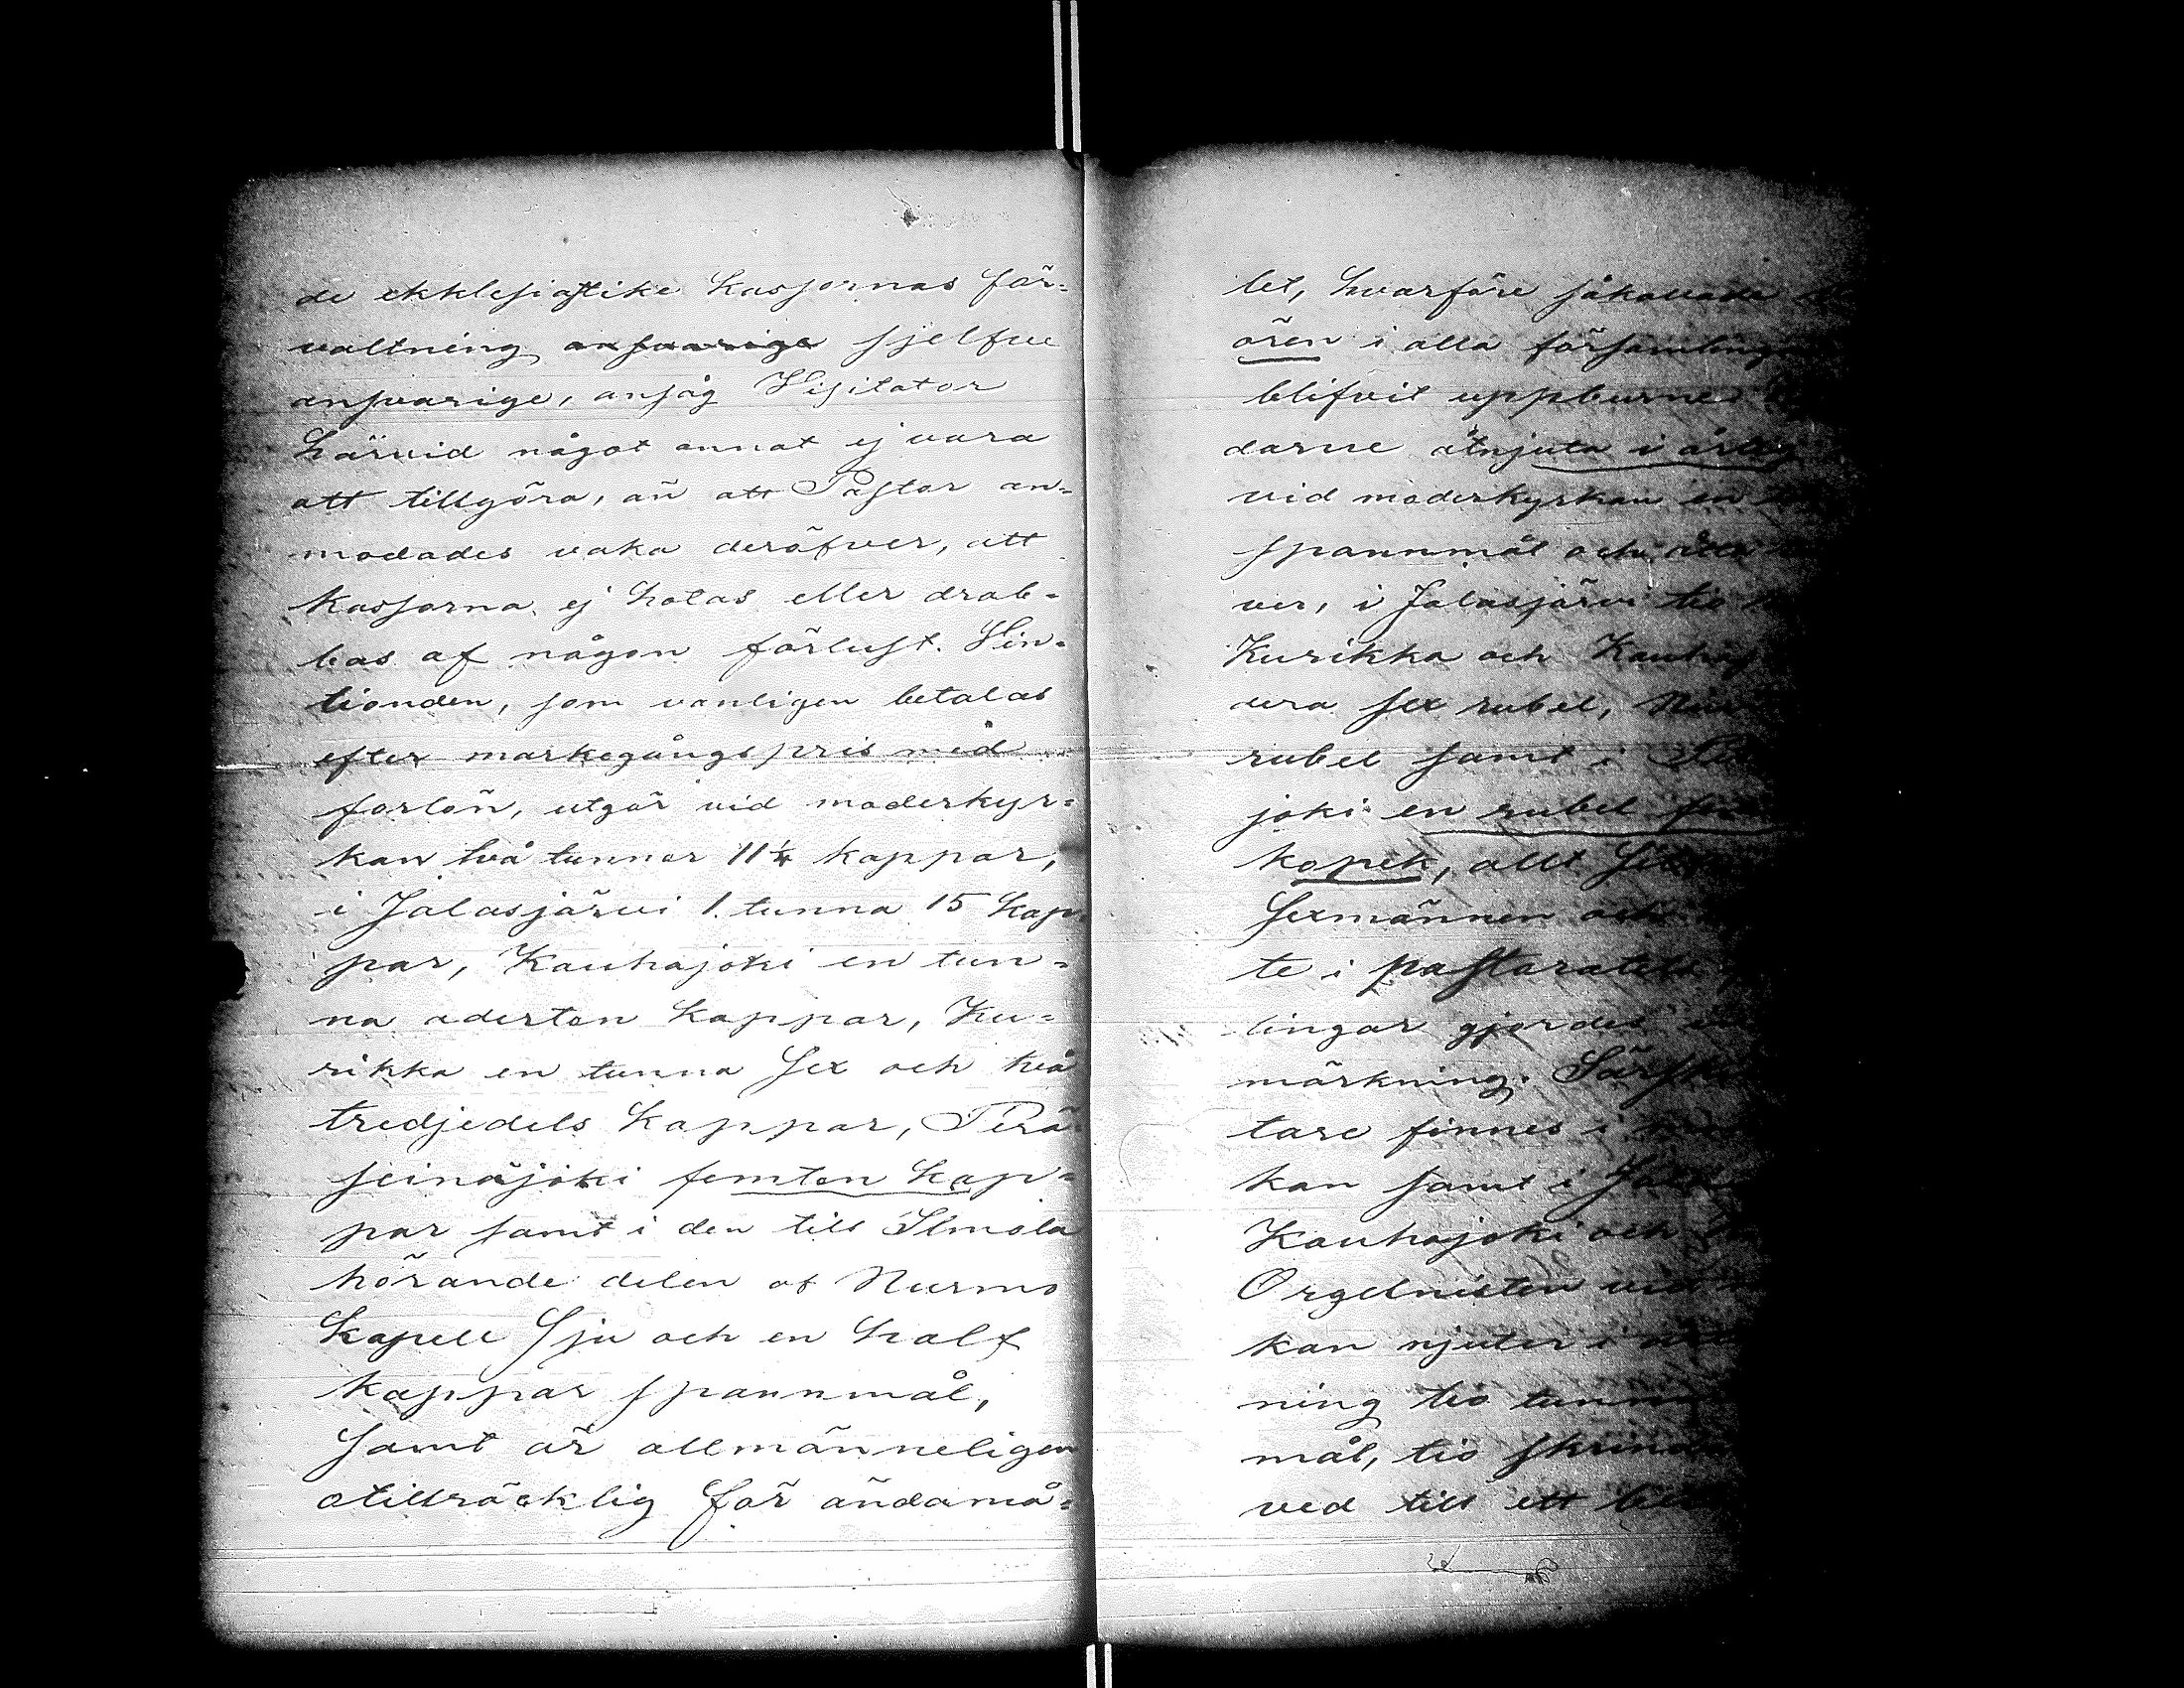 de ekklesiastike kassornas för=
valtning ansvarige sjelfve
ansvarige, ansåg Visitator
härvid något annat ej vara
att tillgöra, än att Pastor an=
modades vaka deröfver, att
kassorna ej hotas eller drab=
bas af någon förlust. Vin=
tionden, som vanligen betalas
efter markegångspris med
forlön, utgör vid moderkyr=
kan två tunnor 11¼ kappar,
i Jalasjärvi 1. tunna 15 kap=
par, Kauhajoki en tun=
na aderton kappar, Ku=
rikka en tunna sex och två
tredjedels kappar, Perä
seinäjoki femton kap=
par samt i den till Ilmola
hörande delen af Nurmo
kapell sju och en half
kappar spannmål,
samt är allmänneligen
otillräcklig för ändamå=
let, hvarföre såkallade
ören i alla församling
blifvit uppburne
darne åtnjuta i årlig
vid moderkyrkan en
spannmål och åtta
ver, i Jalasjärvi tio
Kurikka och Kauhaj
dera sex rubel,
rubel samt i
joki en rubel
kopek, allt
Sexmännen och
te i pastoratets
lingar gjordes
märkning. Särski
tare finnes i
kan samt i
Kauhajoki och
Orgelnisten vid
kan njuter i
ning tio tunn
mål, tio skrind
ved till ett